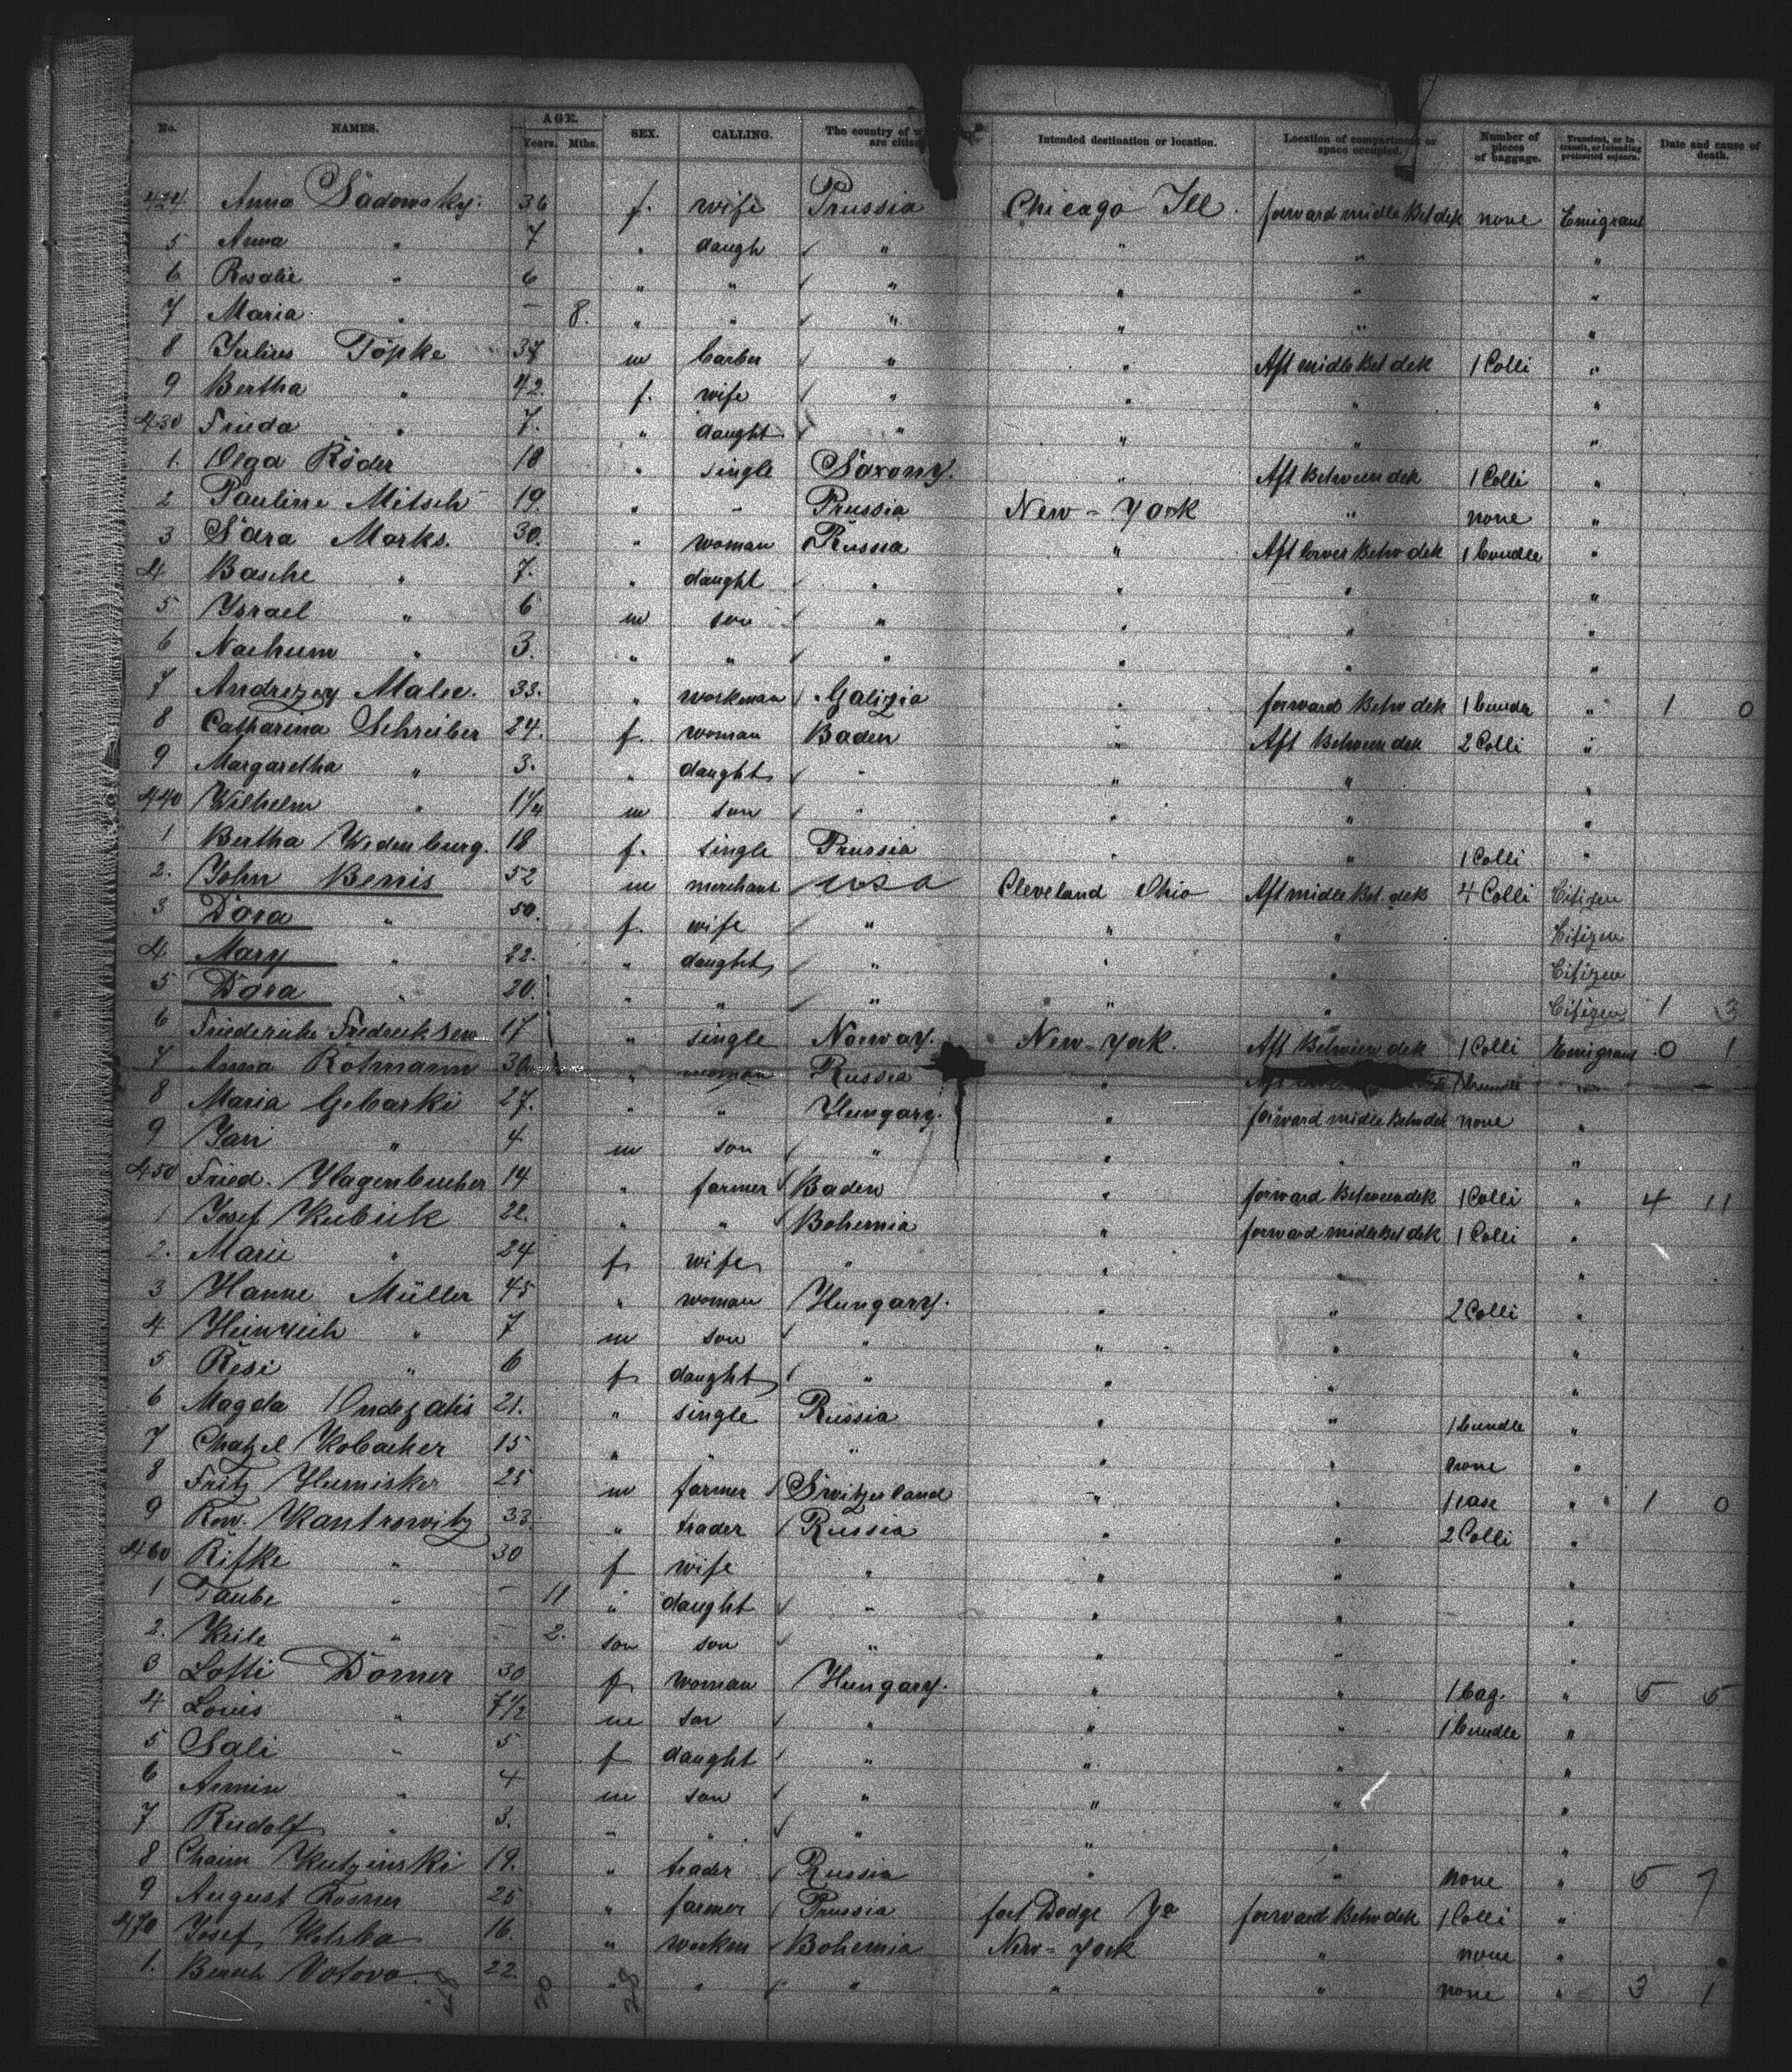 No. NAMES. AGE. Years. Mths. SEX. CALLING. The country of are Intended destination or location. Location of compartment or space occupied. Number of pieces of baggage. Transient, or in transit, or intending protracted sojourn. Date and cause of death.
424 Anna Sadowsky 36 f. wife Prussia Chicago Ill. forward midle Bet dek none Emigrant
5 Anna " 7 " daugh " " " "
6 Rosalie " 6 " " " " " "
7 Maria " – 8. " " " " " "
8 Julius Töpke 37 m barber " " Aft midle Bet dek 1 Colli "
9 Bertha " 42. f. wife " " " "
430 Frieda " 7. " daught. " " " "
1. Olga Röder 18 " single Saxony. " Aft Between dek 1 Colli "
2 Pauline Mitsch 19. " " Prussia New-York " none "
3 Sara Marks. 30. " woman Russia " Aft lower Betw dek 1 bundle "
4 Basche " 7. " daught " " " "
5 Ysrael " 6 m son " " " "
6 Nachum " 3. " " " " " "
7 Andrezey Malec. 33. " workman Galizia " forward Betw dek 1 bundl " 1 0
8 Catharina Schreiber 24. f. woman Baden " Aft Between dek 2 Colli "
9 Margaretha " 3. " daught " " " "
440 Wilhelm " 1 1/4 m son " " " "
1 Bertha Wedenburg. 18 f. single Prussia " " 1 Colli "
2. John Benis 52 m merchant USA Cleveland Ohio Aft midle Bet. dek 4 Colli Citizen
3 Dora " 50. f. wife " " " Citizen
4 Mary " 22. " daught " " " Citizen
5 Dora " 20. " " " " " Citizen 1 3
6 Friederike Fredreeksen 17 " single Norway. New-York. Aft Between dek 1 Colli Emigrant 0 1
7 Anna Rotmann 30 " woman Russia " Aft 1 bundle " –
8 Maria Gebarki 27. " " Hungary. " forward midle Betw dek none "
9 Jan " 4 m son " " " "
450 Fried. Hagenbucher 14 " farmer Baden " forward Between dek 1 Colli " 4 11
1 Josef Kubick 22. " " Bohemia " forward midle Bet dek 1 Colli "
2. Marie " 24 f wife " " " "
3 Hanne Müller 45 " woman Hungary. " " 2 Colli "
4 Heinrich " 7 m son " " " "
5 Resi " 6 f daught " " " "
6 Magda 21. " single Russia " " 1 bundle "
7 Chatzel Kobacker 15 " " " " " none "
8 Fritz 25 m farmer Switzerland " " 1 case " 1 0
9 Kantrowitz 33. " trader Russia " " 2 Colli "
460 Rifke " 30 f wife " " " "
1 Taube " – 11 " daught " " " "
2. Keile " – 2. son son " " " "
3 Lotti Dorner 30 f woman Hungary. " " 1 bag. " 5 5
4 Louis " 7 1/2 m son " " " 1 bundle "
5 Sali " 5 f daught " " " "
6 Armin " 4 m son " " " "
7 Rudolf " 3. " " " " " "
8 Chaim Kutzinski 19. " trader Russia " " none " 5 7
9 August Rosner 25 " farmer Prussia fort Dodge Ya forward Betw dek 1 Colli "
470 Josef 16. " workm Bohemia New-York " none "
1. Votova 22 " " " " " none " 3 1